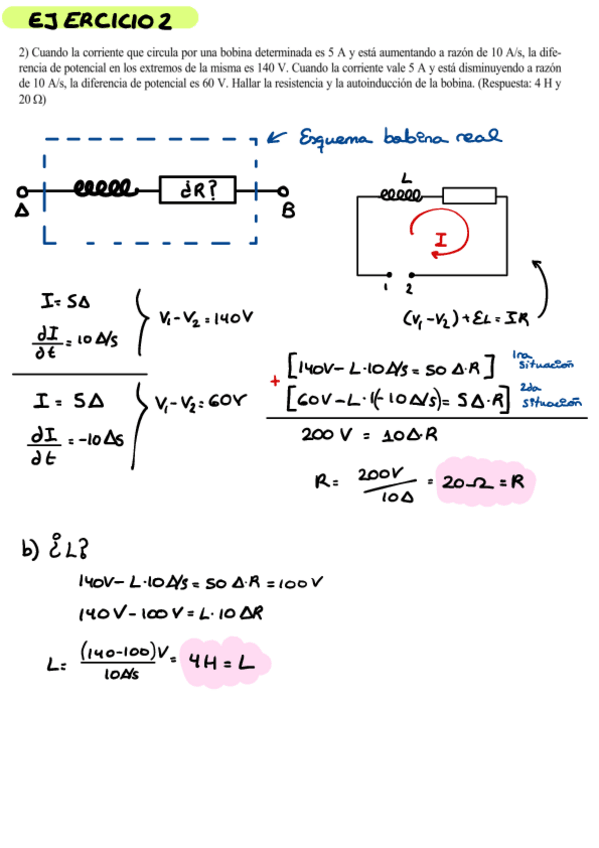 EJERCICIO 2
2) Cuando la corriente que circula por una bobina determinada es 5 A y está aumentando a razón de 10 A/s, la dife-
rencia de potencial en los extremos de la misma es 140 V. Cuando la corriente vale 5 A y está disminuyendo a razón
de 10 A/s, la diferencia de potencial es 60 V. Hallar la resistencia y la autoinducción de la bobina. (Respuesta: 4 H y
20 Ω)
Esquema bobina real
¿R?
A
B
L
I
1 2
(V₁-V₂)+εL=IR
I=5A
∂I/∂t = 10 A/s
V₁-V₂=140V
I=5A
∂I/∂t = -10 As
V₁-V₂=60V
[140V-L·10A/s=50 A·R] 1ra situación
+
[60V-L·(-10A/s)=5A·R] 2da situación
200 V = 10A·R
R= 200V/10A = 20Ω=R
b) ¿L?
140V-L·10A/s=50 A·R=100V
140V-100V=L·10 AR
L= (140-100)V/10A/s = 4H=L